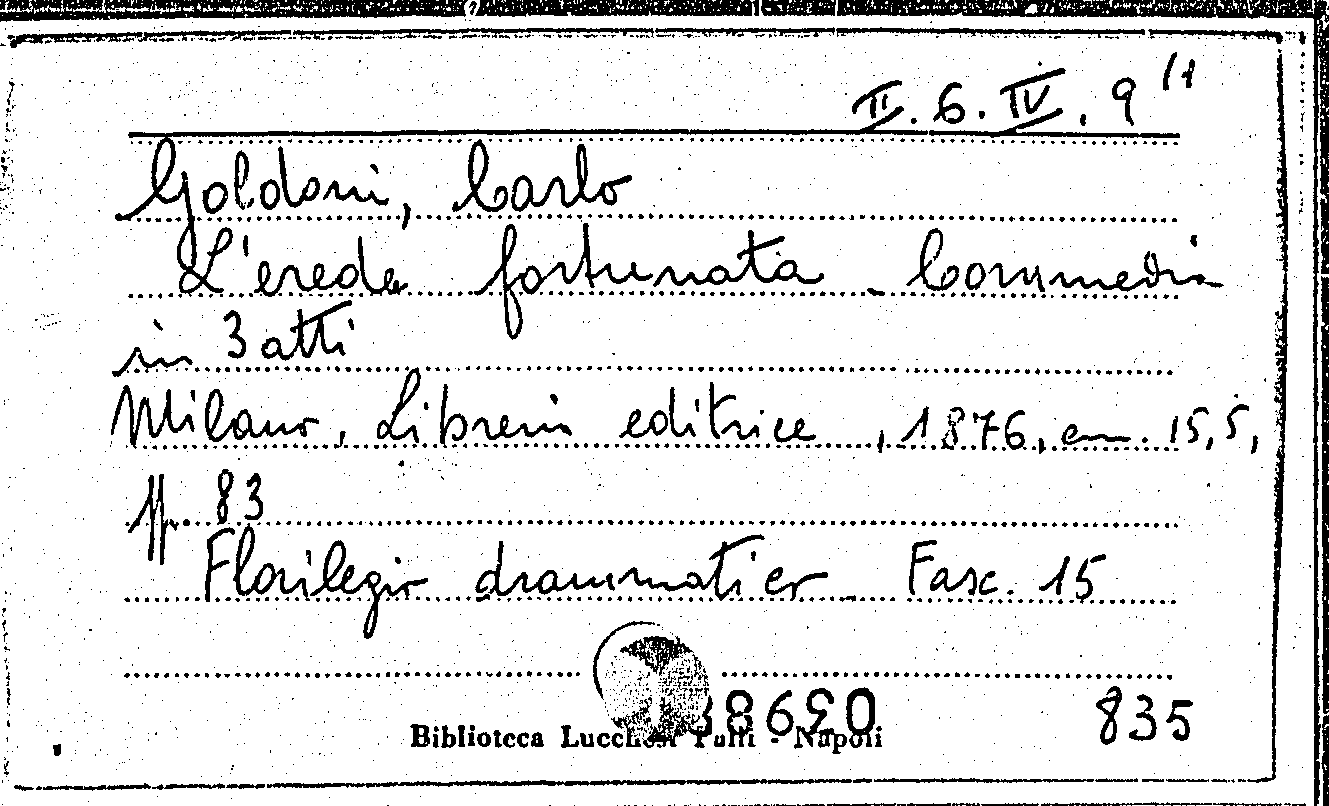 II. 6. IV. 9 /1
Goldoni, Carlo
L'erede fortunata - Commedia
in 3 atti
Milano, Libreria editrice, 1876, cm. 15,5,
pp. 83
Florilegio drammatico - Fasc. 15
835
Biblioteca Lucchesi Palli - Napoli